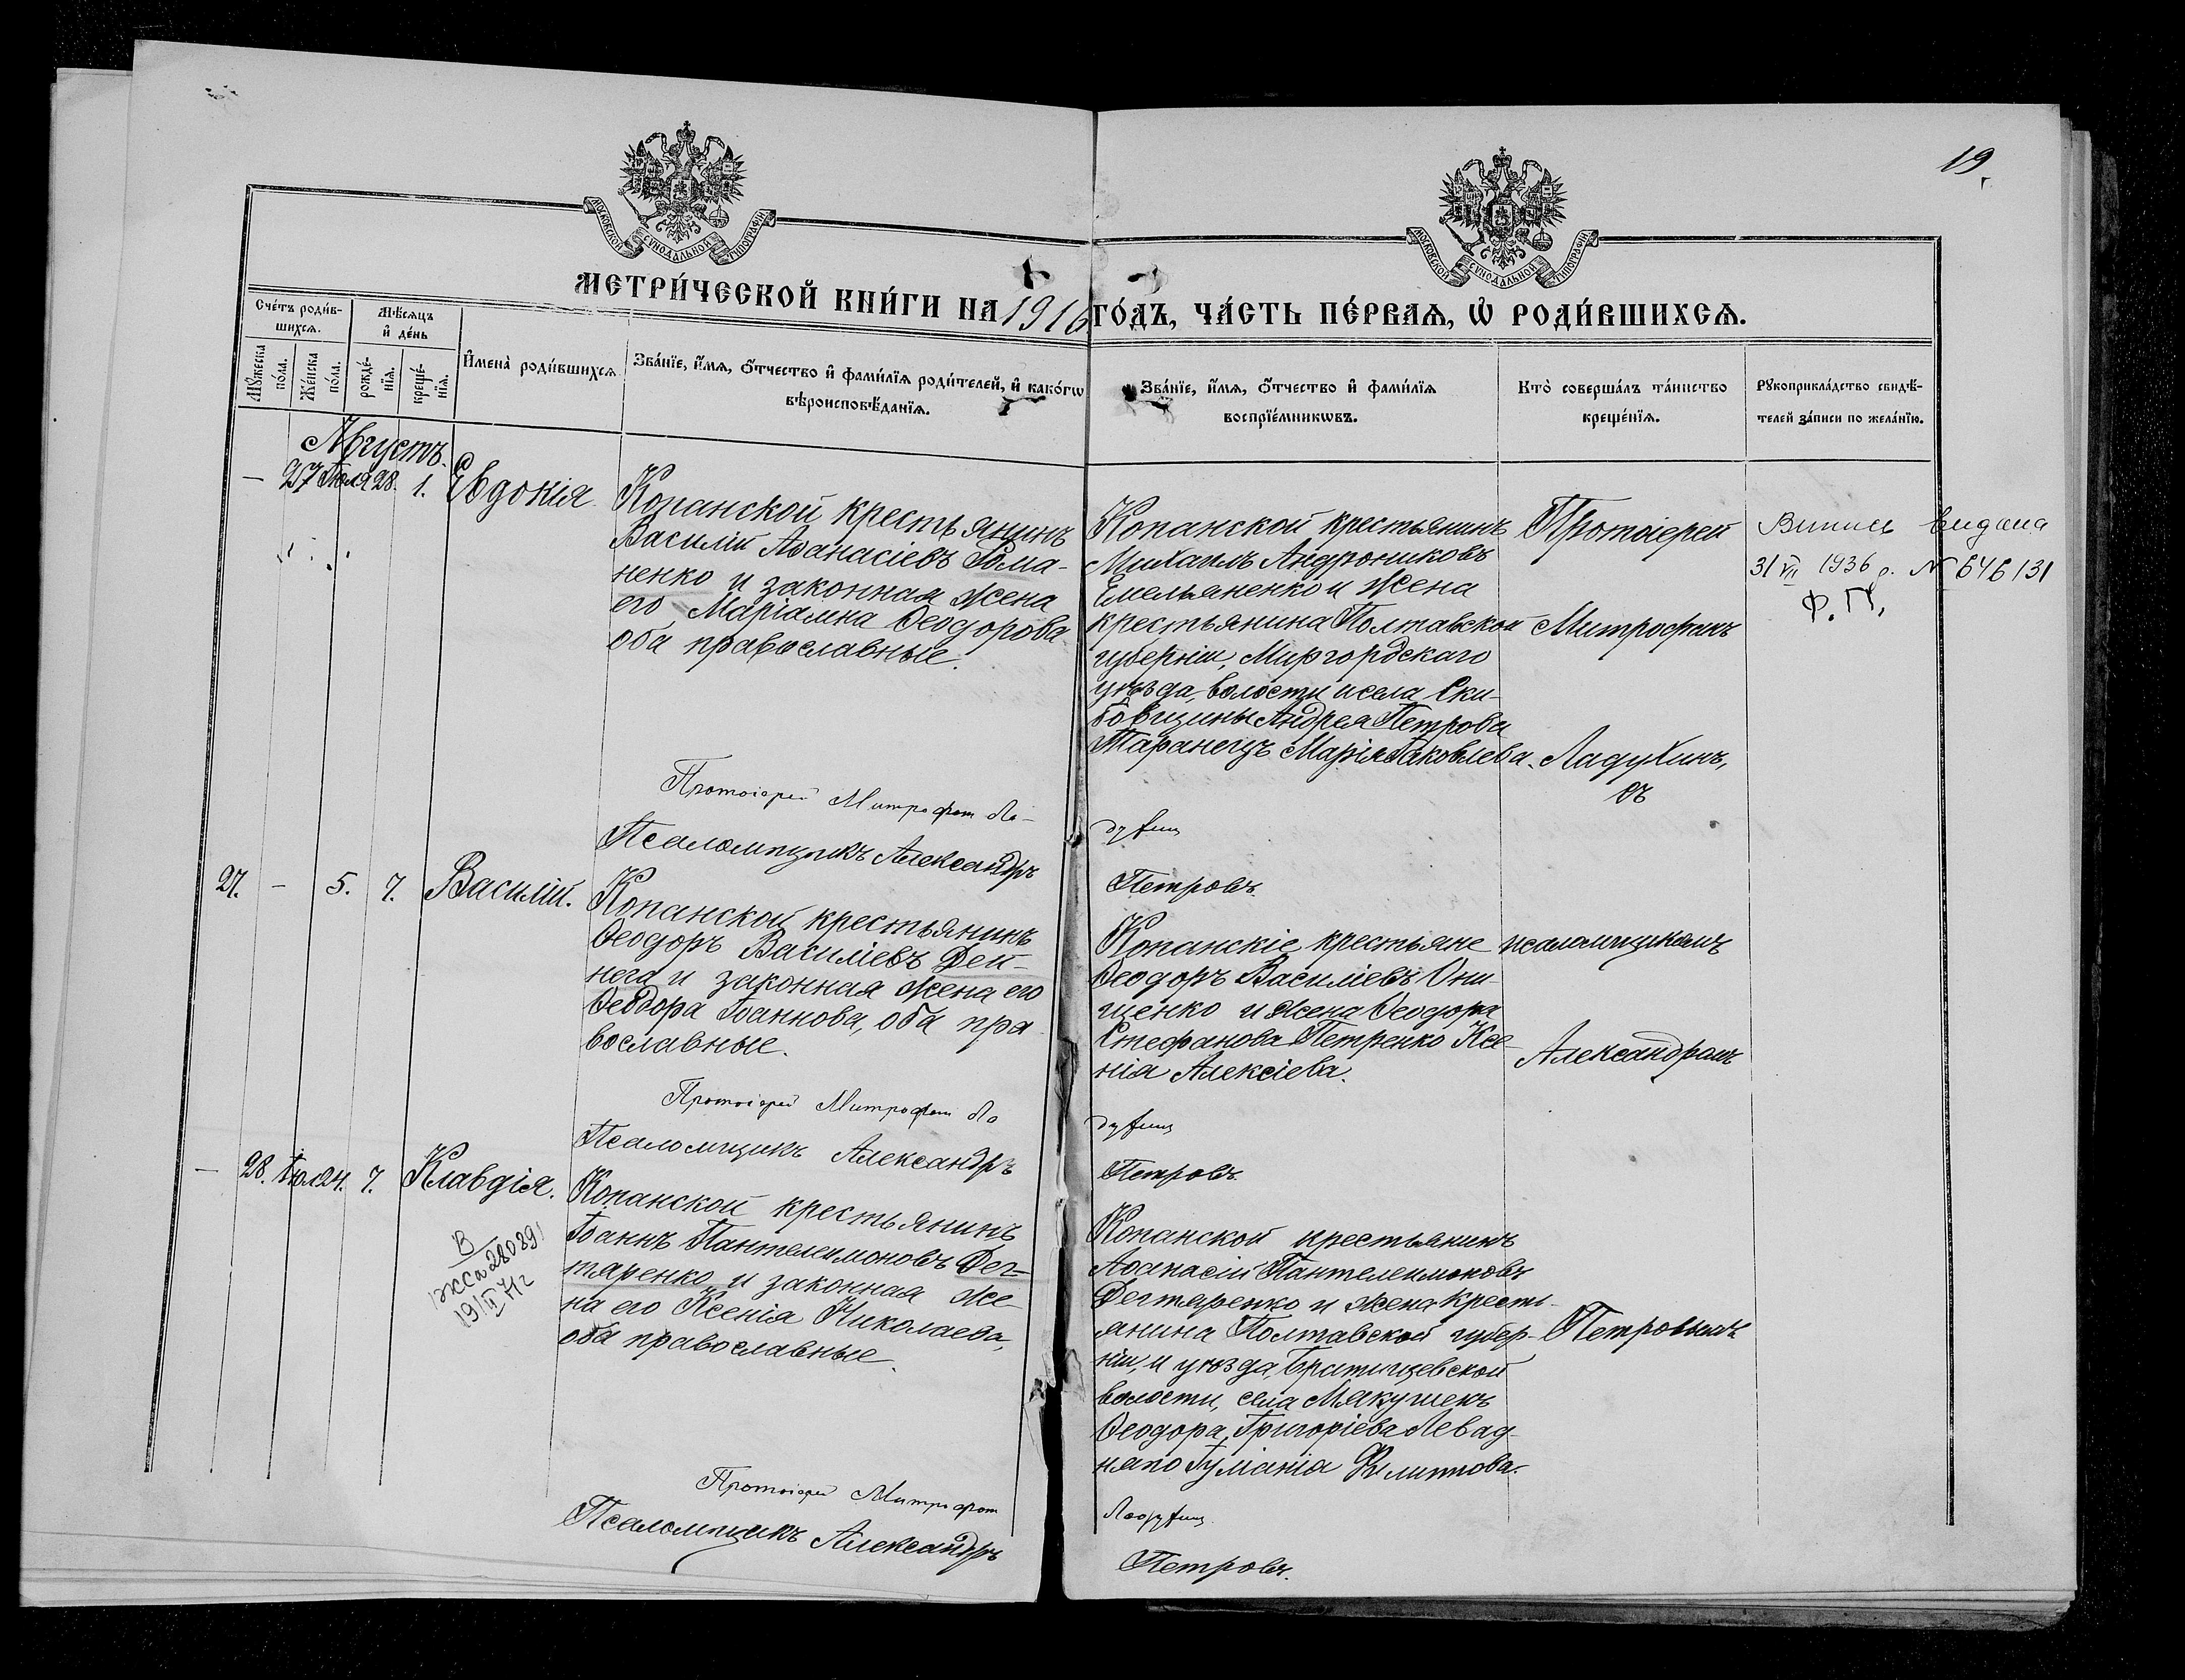 19.
МОСКОВСКОЙ СѴНОДАЛЬНОЙ ТИПОГРАФІИ
МОСКОВСКОЙ СѴНОДАЛЬНОЙ ТИПОГРАФІИ
МЕТРИ́ЧЕСКОЙ КНИ́ГИ НА 1916 ГО́ДЪ, ЧА́СТЬ ПЕ́РВАѦ, Ѡ҆ РОДИ́ВШИХСѦ.
Сче́тъ роди́в-
шихсѧ.
Мꙋ́жеска по́ла.
Же́нска по́ла.
Мѣ́сѧцъ и҆ де́нь
рожде́-нїѧ.
креще́-нїѧ.
И҆мена̀ роди́вшихсѧ
Зва́нїе, и҆́мѧ, ѻ҆́тчество и҆ фами́лїѧ роди́телей, и҆ како́гѡ
вѣроисповѣ́данїѧ.
Зва́нїе, и҆́мѧ, ѻ҆́тчество и҆ фами́лїѧ
воспрїе́мникѡвъ.
Кто̀ соверша́лъ та́инство
креще́нїѧ.
Рꙋкоприкла́дство свидѣ́-
телей за́писи по жела́нїю.
Августъ.
— 27 Іюля 28. 1. Евдокія.
Копанской крестьянинъ
Василій Аѳанасіевъ Рома-
ненко и законная жена
его Маріамна Ѳеодорова
оба православные.
Копанской крестьянинъ
Михаилъ Андрониковъ
Емельяненко и жена
крестьянина Полтавской
губерніи, Миргородскаго
уѣзда, волости и села Ски-
бовщины Андрея Петрова
Таранецъ Марія Іаковлева.
Протоіерей
Митрофанъ
Ладухинъ,
съ
Випись видана
31/VII 1936 р. № 646131
Ф. П.
Протоіерей Митрофан Ла-
духин
Псаломщикъ Александръ
Петровъ.
27. — 5. 7. Василій.
Копанской крестьянинъ
Ѳеодоръ Василіевъ Дей-
нега и законная жена его
Ѳеодора Іоаннова, оба пра
вославные.
Копанскіе крестьяне
Ѳеодоръ Василіевъ Они-
щенко и жена Ѳеодора
Стефанова Петренко Ксе-
нія Алексіева.
псаломщикомъ
Александромъ
Протоіерей Митрофан Ла
духин
Псаломщикъ Александръ
Петровъ.
— 28. Іюл 24. 7. Клавдія.
Копанской крестьянинъ
Іоаннъ Пантелеимоновъ Дег-
тяренко и законная же-
на его Ксенія Николаева,
оба православные.
Копанской крестьянинъ
Аѳанасій Пантелеимоновъ
Дегтяренко и жена кресть-
янина Полтавской губер-
ніи, и уѣзда, Братищевской
волости, села Мякушекъ
Ѳеодора Григоріева Левад-
няго Іуліанія Филиппова.
Петровымъ
Протоіерей Митрофан
Ладухин
Псаломщикъ Александръ
Петровъ.